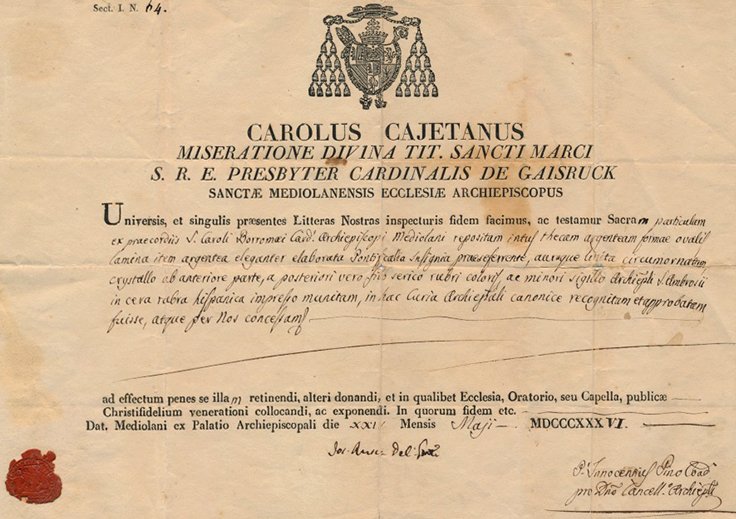 Sect. I. N. 64.
CAROLUS CAJETANUS
MISERATIONE DIVINA TIT. SANCTI MARCI
S. R. E. PRESBYTER CARDINALIS DE GAISRUCK
SANCTÆ MEDIOLANENSIS ECCLESIÆ ARCHIEPISCOPUS
Universis, et singulis præsentes Litteras Nostras inspecturis fidem facimus, ac testamur Sacram particulam
ex praecordiis S. Caroli Borromæi Card. Archiepiscopi Mediolani repositam intus thecam argenteam formae ovalis
lamina item argentea eleganter elaborata Pontificalia Insignia praeseferente, auraque linita circumornatum
crystallo ab anteriore parte, a posteriori vero filo serico rubri coloris, ac minori sigillo Archiepli S. Ambrosii
in cera rubra hispanica impresso munitam, in hac Curia Archiepli canonice recognitam et approbatam
fuisse, atque per Nos concessam
ad effectum penes se illam retinendi, alteri donandi, et in qualibet Ecclesia, Oratorio, seu Capella, publicæ
Christifidelium venerationi collocandi, ac exponendi. In quorum fidem etc.
Dat. Mediolani ex Palatio Archiepiscopali die XXI Mensis Maji MDCCCXXXVI.
Innocentius Pino
pro Dno Cancell. Archiepli